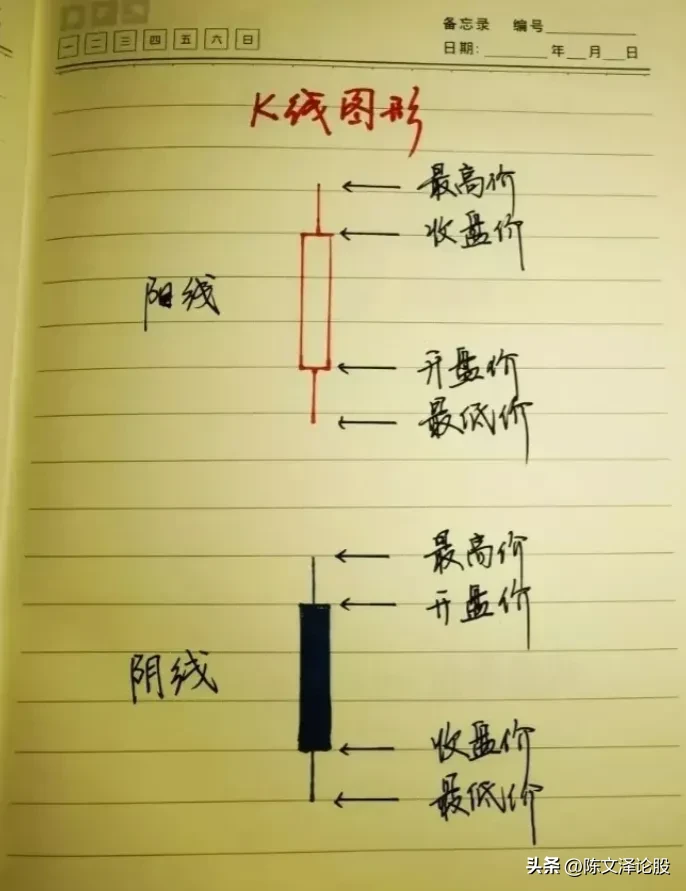 备忘录 编号
一 二 三 四 五 六 日
日期: 年 月 日
K线图形
最高价
收盘价
阳线
开盘价
最低价
最高价
开盘价
阴线
收盘价
最低价
头条 @陈文泽论股